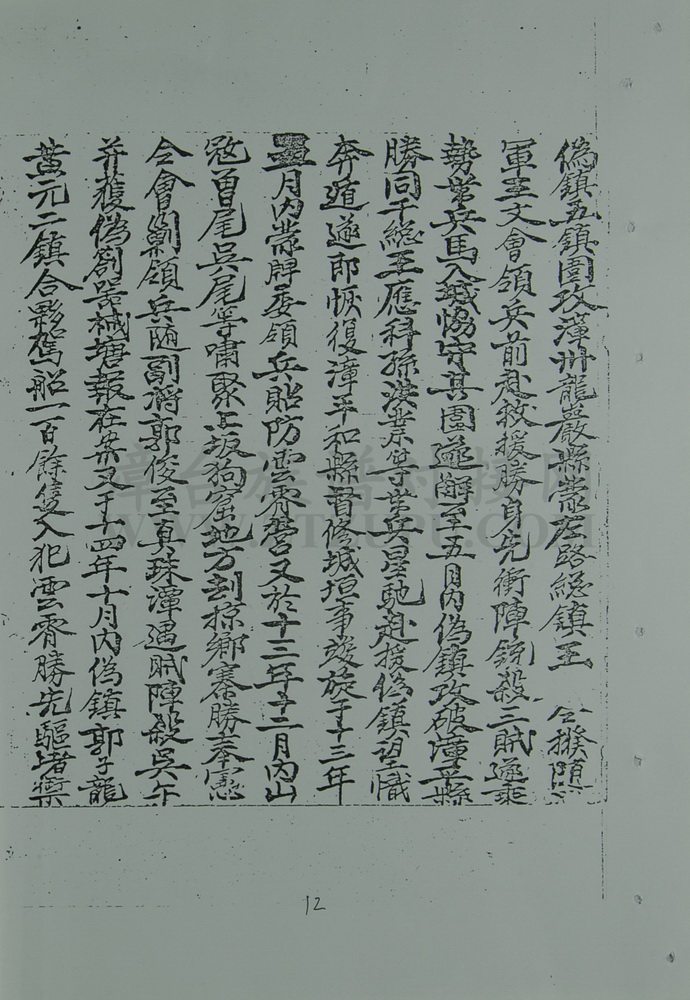 偽鎮五鎮圍攻漳州龍巖縣蒙左路總鎮王 令撥隨
軍王文會領兵前赴救援勝身先衝陣銃殺三賊遂乘
勢帶兵馬入城協守其圍遂解至五月內偽鎮攻破漳平縣
勝同千總王應科孫漢業等帶兵星馳赴援偽鎮望幟
奔遁遂即恢復漳平和縣督修城垣事竣旋于十三年
月內蒙牌委領兵貼防雲霄營又於十三年十二月內山
寇曽尾吳尾等嘯聚上坂狗窟地方刦掠鄉寨勝奉憲
令會剿領兵隨副將郭俊至真珠潭遇賊陣殺吳午
并獲偽劄器械塘報在案又于十四年十月內偽鎮郭子龍
黃元二鎮合夥駕船一百餘隻入犯雲霄勝先驅堵禦
12